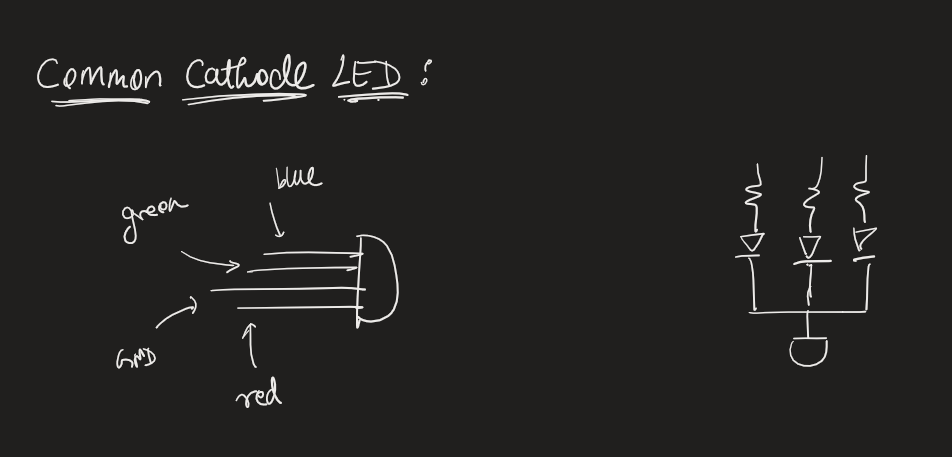 Common Cathode LED :
blue
green
GND
red